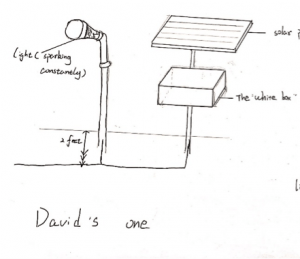 light ( sparking
constanely)
solar
The "white box"
2 feet
David's one